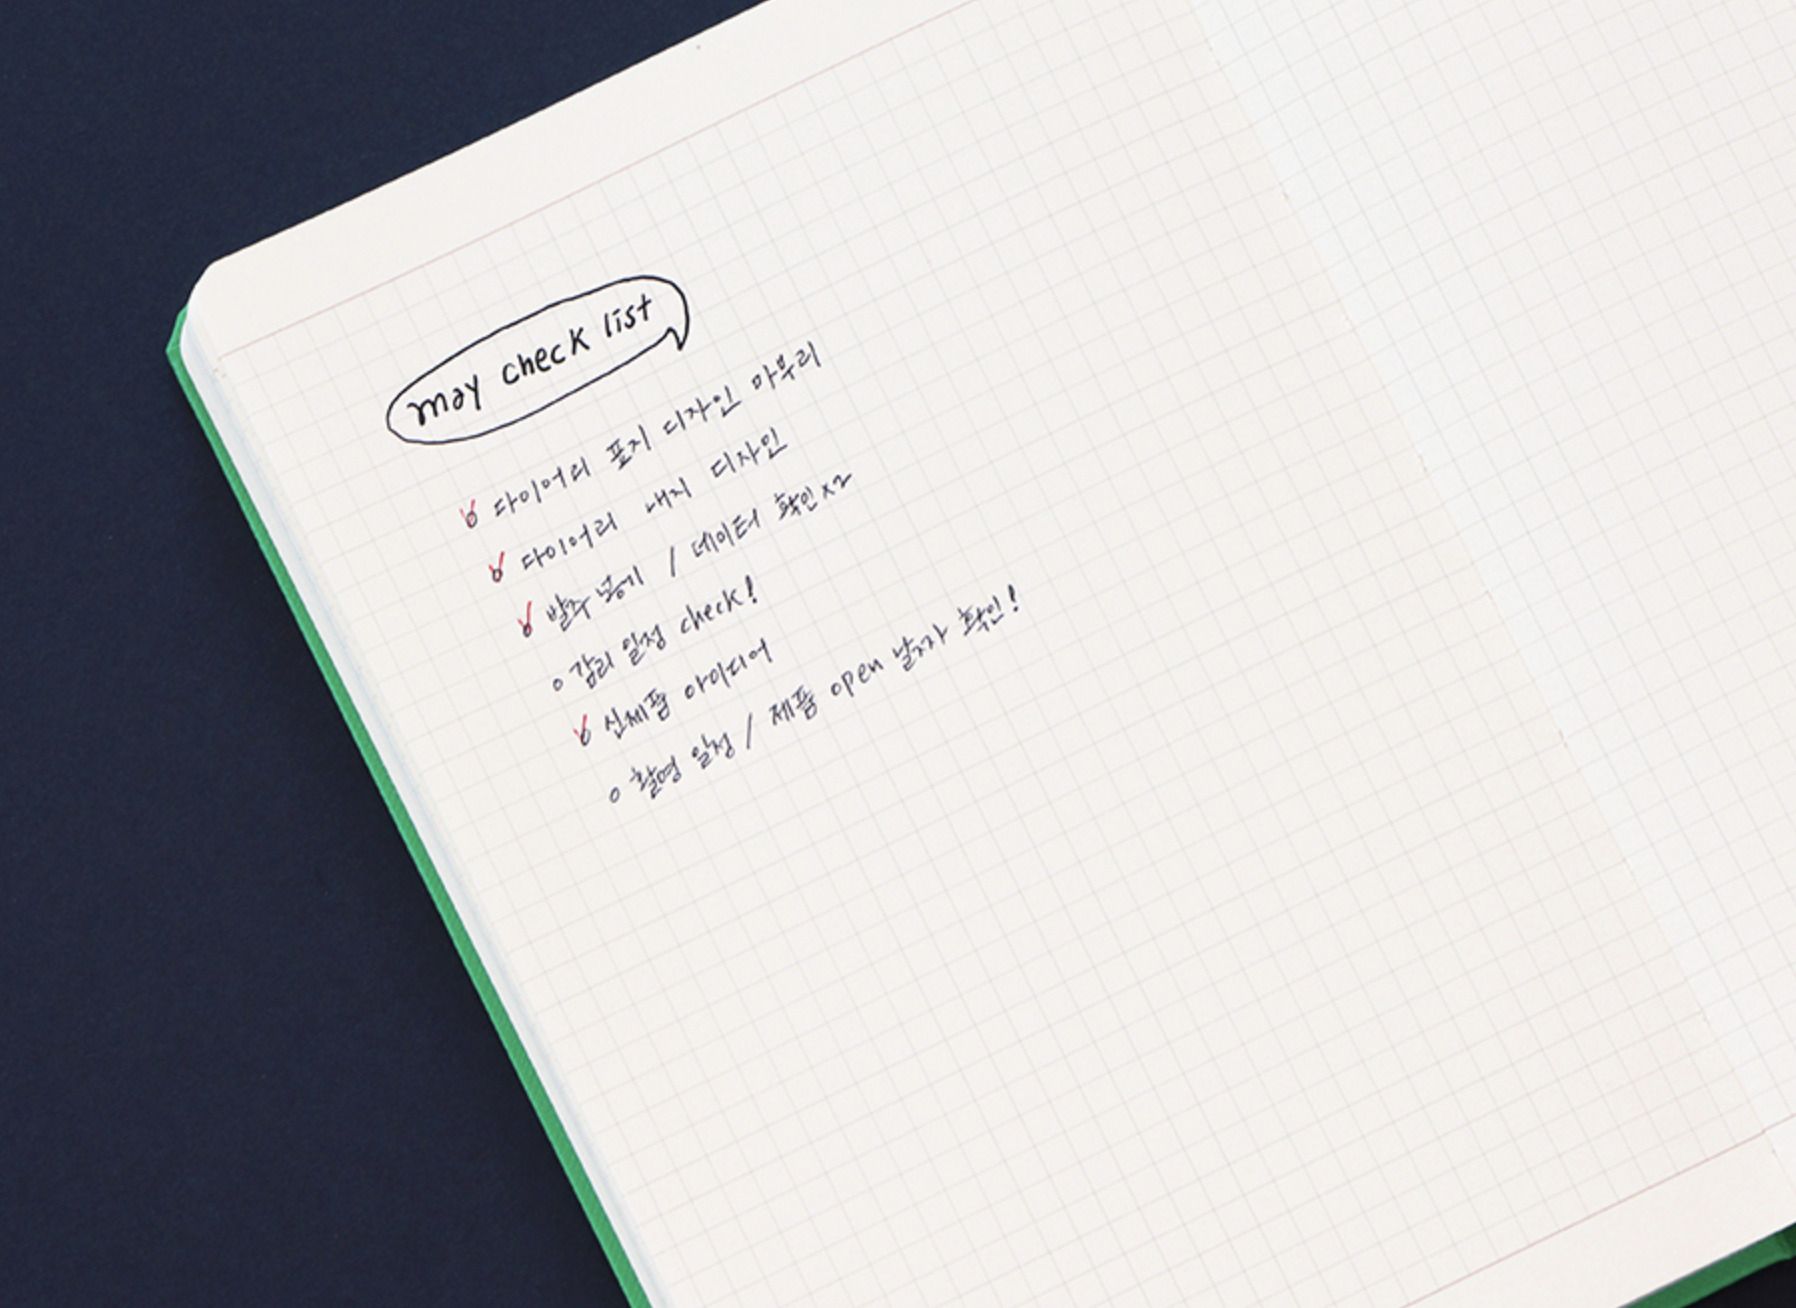 may check list
다이어리 표지 디자인 마무리
다이어리 내지 디자인
발주 넣기 / 데이터 확인 x2
감리 일정 check!
신제품 아이디어
촬영 일정 / 제품 open 날짜 확인!